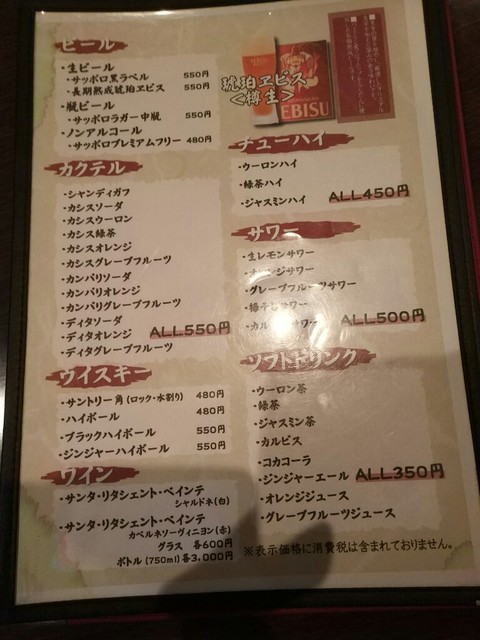 ビール
・生ビール
・サッポロ黒ラベル 550円
・長期熟成琥珀ヱビス 550円
・瓶ビール
・サッポロラガー中瓶 550円
・ノンアルコール
・サッポロプレミアムフリー 480円
カクテル
・シャンディガフ
・カシスソーダ
・カシスウーロン
・カシス緑茶
・カシスオレンジ
・カシスグレープフルーツ
・カンパリソーダ
・カンパリオレンジ
・カンパリグレープフルーツ
・ディタソーダ
・ディタオレンジ ALL550円
・ディタグレープフルーツ
ウイスキー
・サントリー角(ロック・水割り) 480円
・ハイボール 480円
・ブラックハイボール 550円
・ジンジャーハイボール 550円
ワイン
・サンタ・リタシェント・ベインテ
シャルドネ(白)
・サンタ・リタシェント・ベインテ
カベルネソーヴィニヨン(赤)
グラス 各600円
ボトル(750ml)各3,000円
琥珀ヱビス
<樽生>
YEBISU
チューハイ
・ウーロンハイ
・緑茶ハイ
・ジャスミンハイ ALL450円
サワー
・生レモンサワー
・オレンジサワー
・グレープフルーツサワー
・梅干しサワー
・カルピスサワー ALL500円
ソフトドリンク
・ウーロン茶
・緑茶
・ジャスミン茶
・カルピス
・コカコーラ
・ジンジャーエール ALL350円
・オレンジジュース
・グレープフルーツジュース
※表示価格に消費税は含まれておりません。